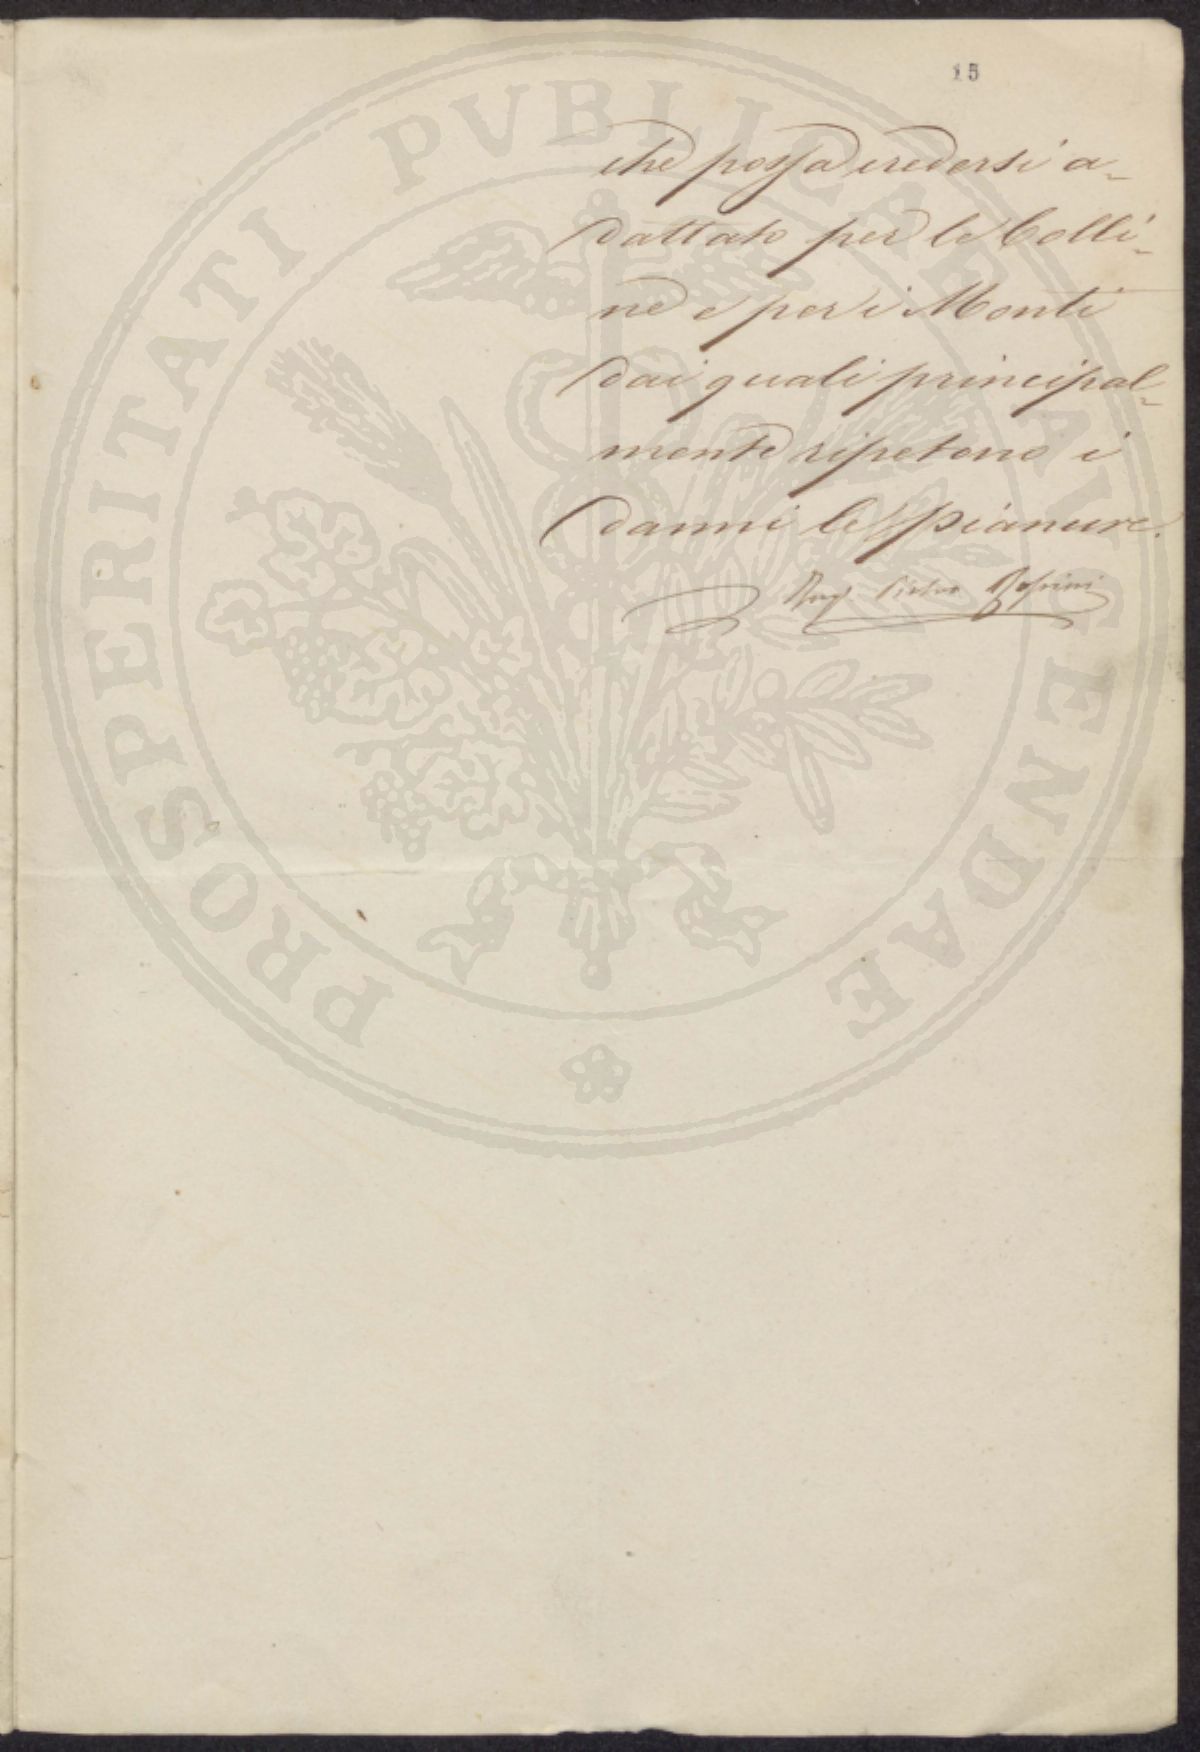 15
che possa credersi a-
dattato per le Colli-
ne e per i Monti
dai quali principal-
mente ripetono i
danni le Pianure.
Pietro
PROSPERITATI PVBLICAE AVGENDAE